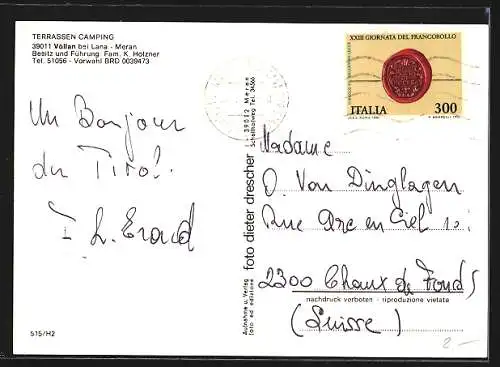 TERRASSEN CAMPING
39011 Völlan bei Lana - Meran
Besitz und Führung Fam. K. Holzner
Tel. 51056 - Vorwahl BRD 0039473
Un Bonjour
du Tirol
515/H2
Aufnahme u. Verlag
foto ed edizione
foto dieter drescher
39012 Meran
XXIII GIORNATA DEL FRANCOBOLLO
ITALIA 300
Madame
O. Von Dinglagen
Rue Arc en Ciel
2300 Chaux de Fonds
nachdruck verboten - riproduzione vietata
(Suisse)
2-